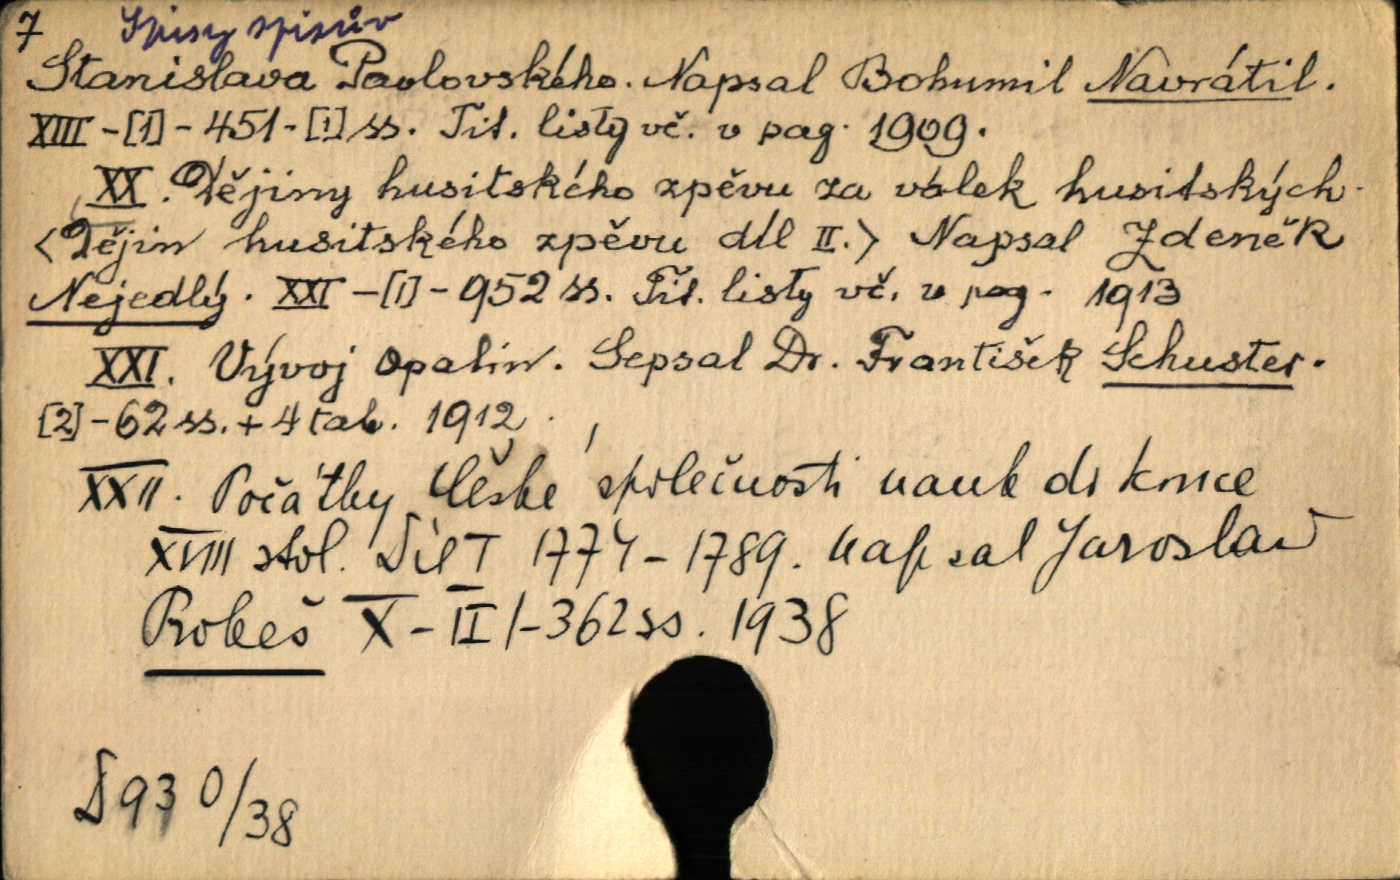 7 Spisy spisův
Stanislava Pavlovského. Napsal Bohumil Navrátil.
XIII-[1]-451-[1] ss. Tit. listy vč. v pag. 1909.
XX. Dějiny husitského zpěvu za válek husitských.
<Dějin husitského zpěvu díl II.> Napsal Zdeněk
Nejedlý. XXI-[1]-952 ss. Tit. listy vč. v pag. 1913
XXI. Vývoj opalin. Sepsal Dr. František Schuster.
[2]-62 ss. + 4 tab. 1912.
XXII. Počátky České společnosti nauk do konce
XVIII stol. Díl I 1774-1789. napsal Jaroslav
Prokeš X-II/-362 ss. 1938
D 930/38